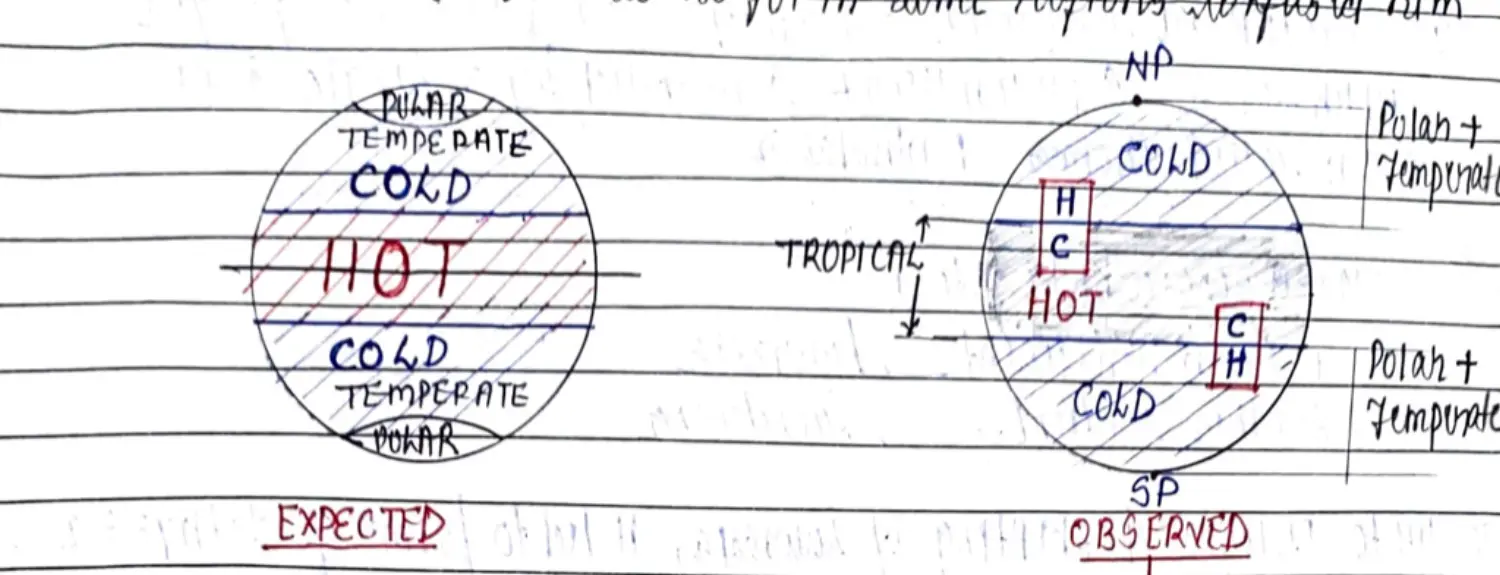 NP
POLAR
TEMPERATE
COLD
HOT
COLD
TEMPERATE
POLAR
EXPECTED
Polar +
Temperate
COLD
H
C
TROPICAL
HOT
C
H
COLD
Polar +
Temperate
SP
OBSERVED